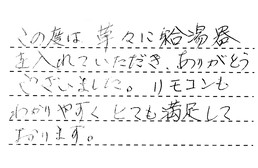 この度は 早々に給湯器
を入れていただき、ありがとう
ございました。リモコンも
わかりやすく とても満足して
おります。